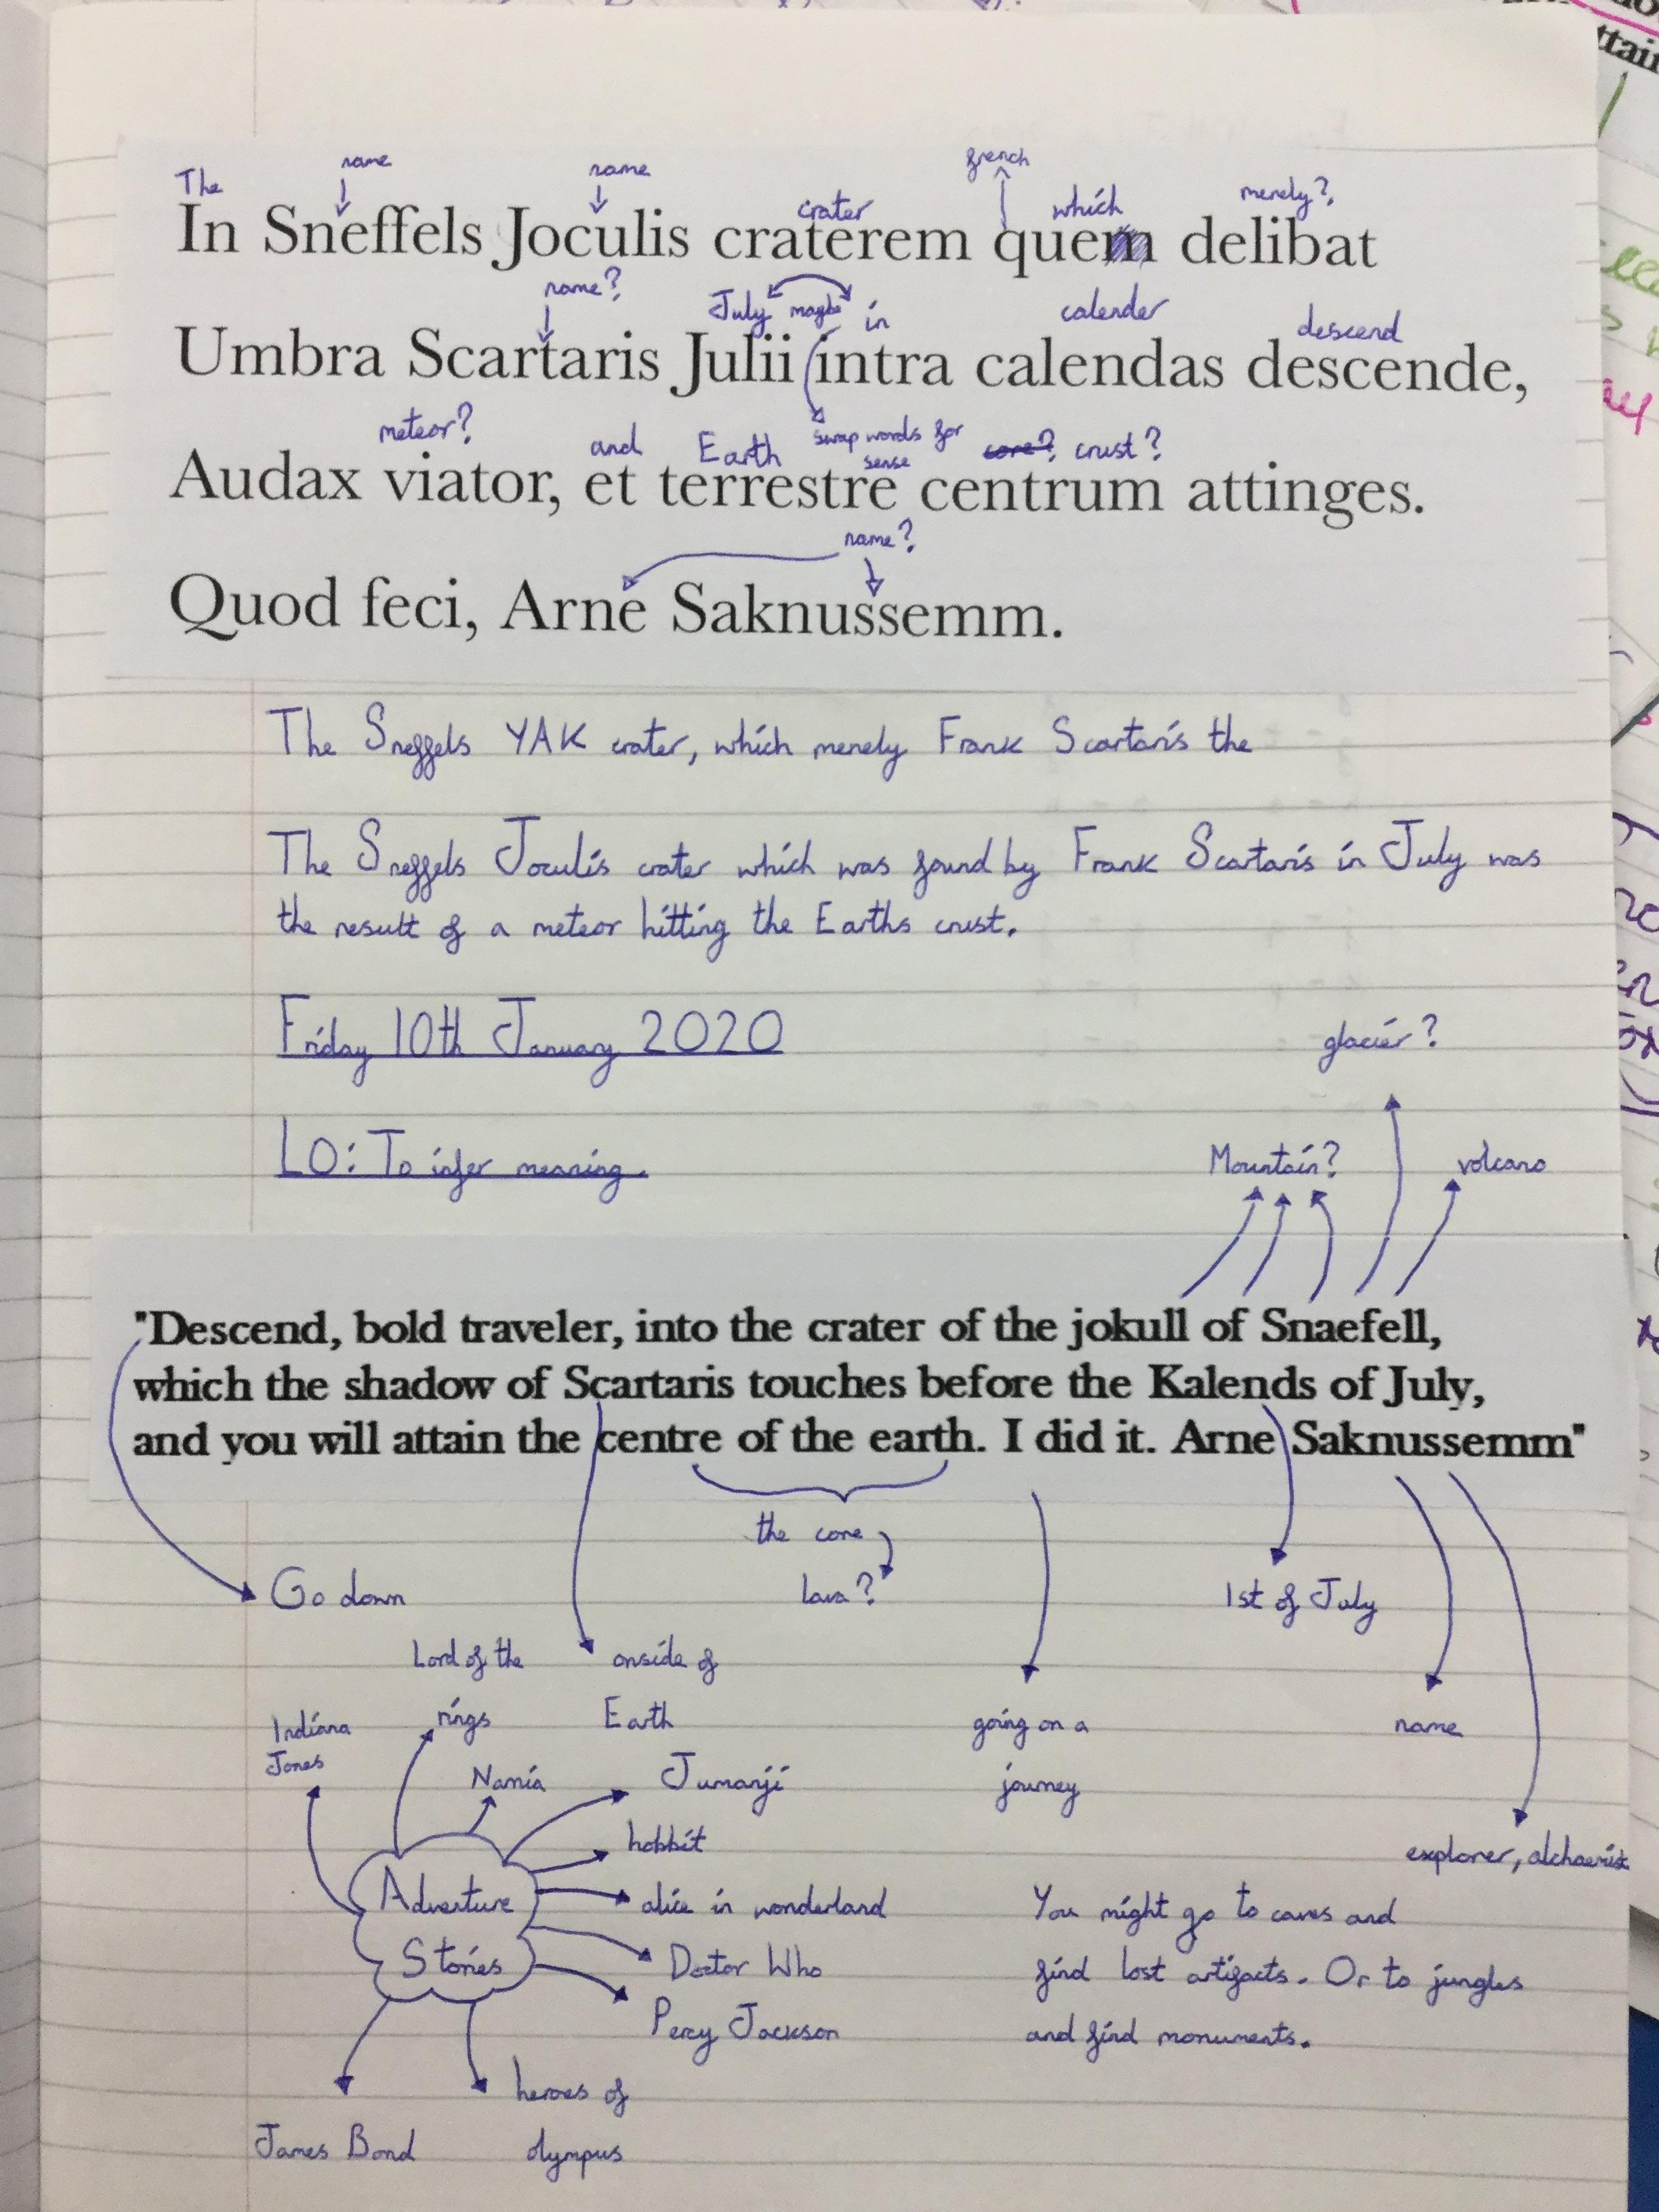 The name name crater french which merely?
In Sneffels Joculis craterem quem delibat
name? July maybe in calender descend
Umbra Scartaris Julii intra calendas descende,
meteor? and Earth swap words for sense core? crust?
Audax viator, et terrestre centrum attinges.
name?
Quod feci, Arne Saknussemm.
The Sneffels YAK crater, which merely Frank Scartaris the
The Sneffels Joculis crater which was found by Frank Scartaris in July was
the result of a meteor hitting the Earths crust.
Friday 10th January 2020
glacier?
LO: To infer meaning.
Mountain? volcano
"Descend, bold traveler, into the crater of the jokull of Snaefell,
which the shadow of Scartaris touches before the Kalends of July,
and you will attain the centre of the earth. I did it. Arne Saknussemm"
the core
Go down
lava?
1st of July
Lord of the
rings
onside of
Earth
Indiana
Jones
going on a
journey
name
Narnia
Jumanji
hobbit
explorer, alchaemist
Adventure
Stories
alice in wonderland
Doctor Who
Percy Jackson
You might go to caves and
find lost artifacts. Or to jungles
and find monuments.
heroes of
olympus
James Bond